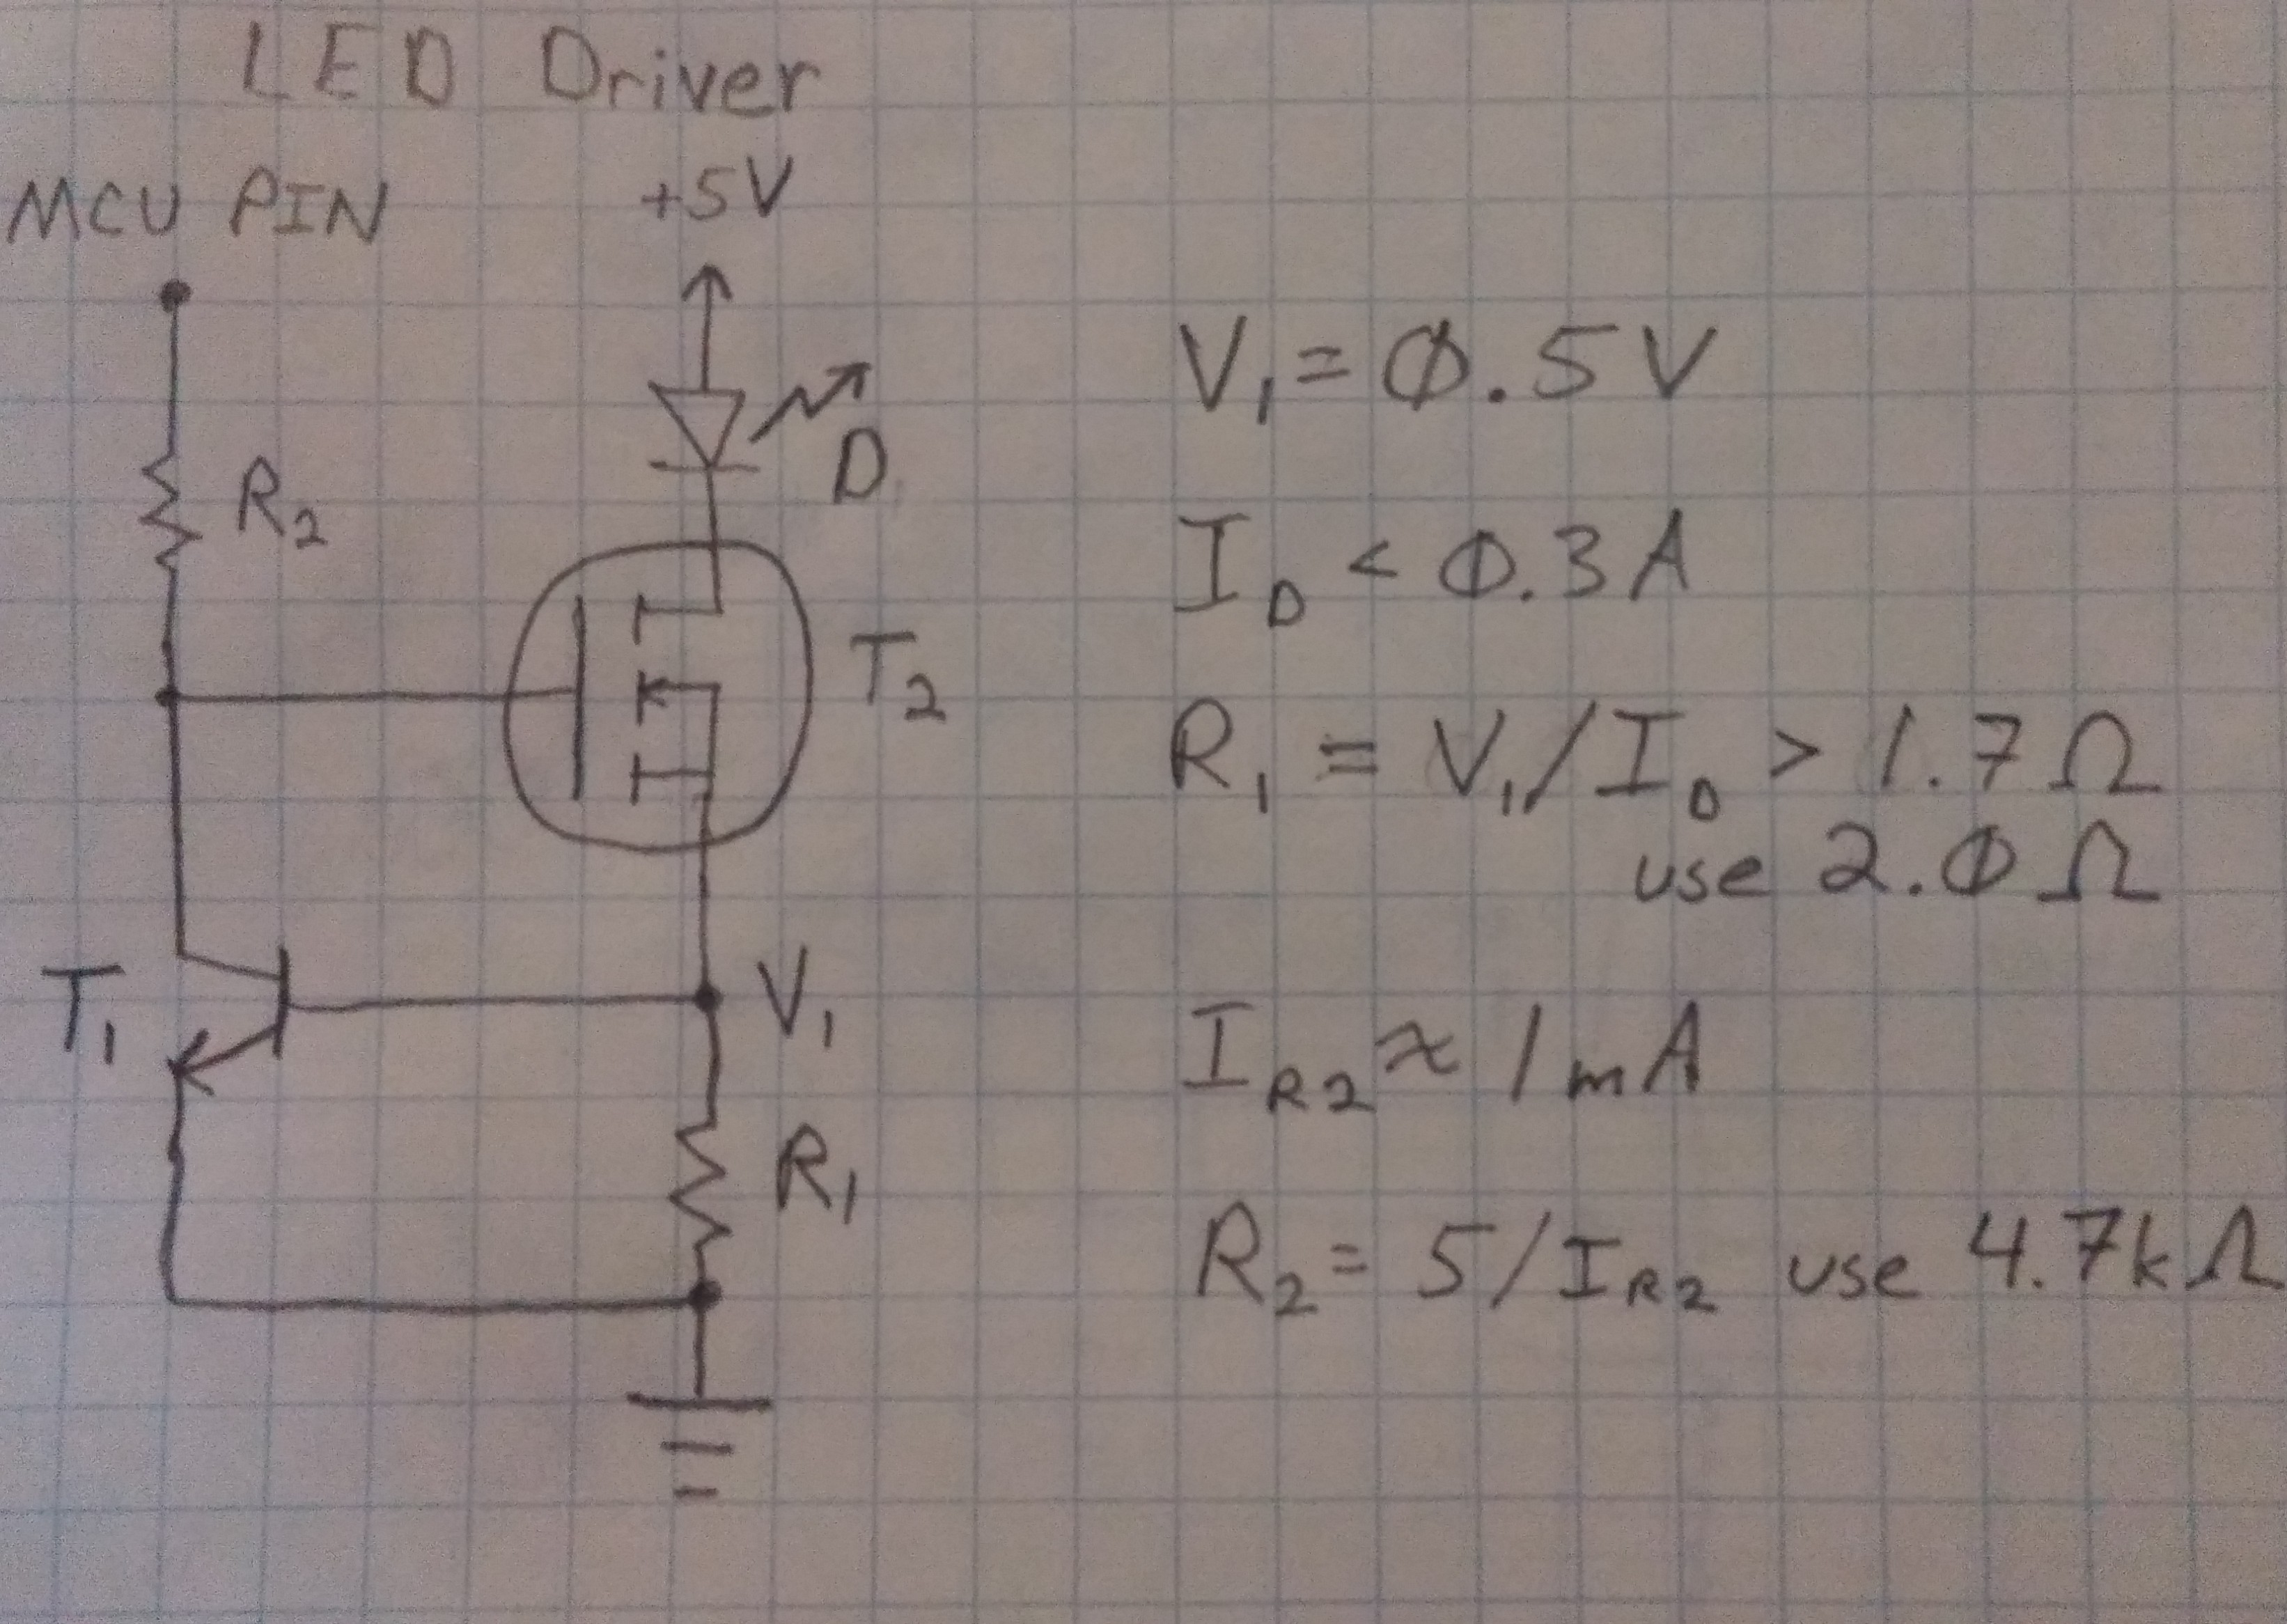 LED Driver
MCU PIN
+5V
D
R2
T2
T1
V1
R1
V1 = 0.5V
ID < 0.3A
R1 = V1/ID > 1.7Ω
use 2.0Ω
IR2 ≈ 1mA
R2 = 5/IR2 use 4.7kΩ